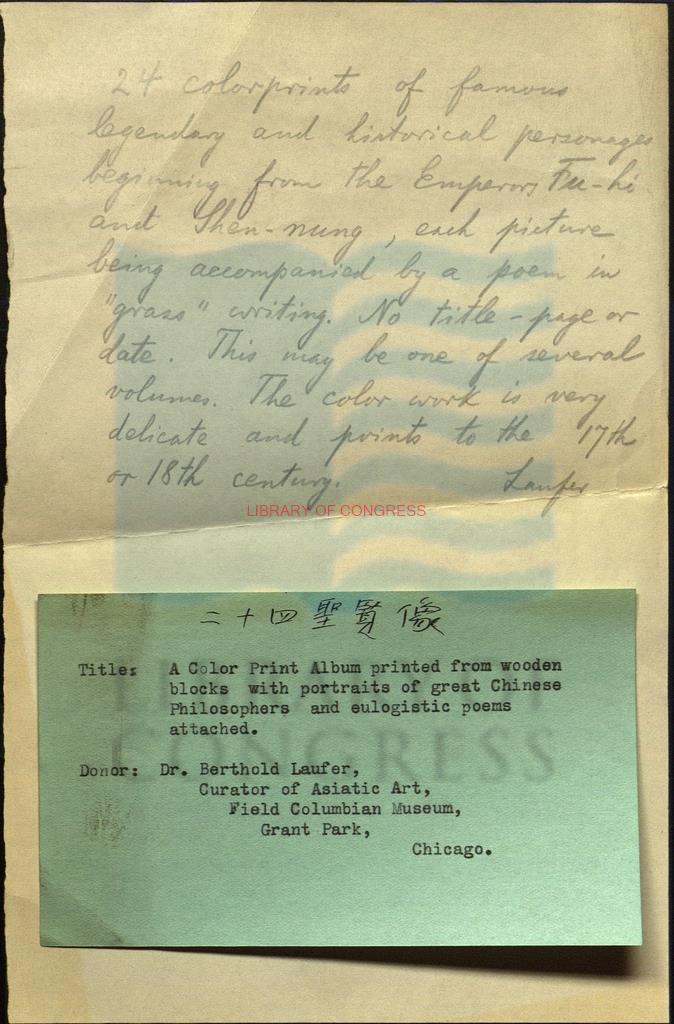 24 colorprints of famous
legendary and historical personages
beginning from the Emperors Fu-hi
and Shen-nung, each picture
being accompanied by a poem in
"grass" writing. No title-page or
date. This may be one of several
volumes. The color work is very
delicate and points to the 17th
or 18th century. Laufer
LIBRARY OF CONGRESS
二十四聖賢像
Title: A Color Print Album printed from wooden
blocks with portraits of great Chinese
Philosophers and eulogistic poems
attached.
Donor: Dr. Berthold Laufer,
Curator of Asiatic Art,
Field Columbian Museum,
Grant Park,
Chicago.
LIBRARY OF
CONGRESS